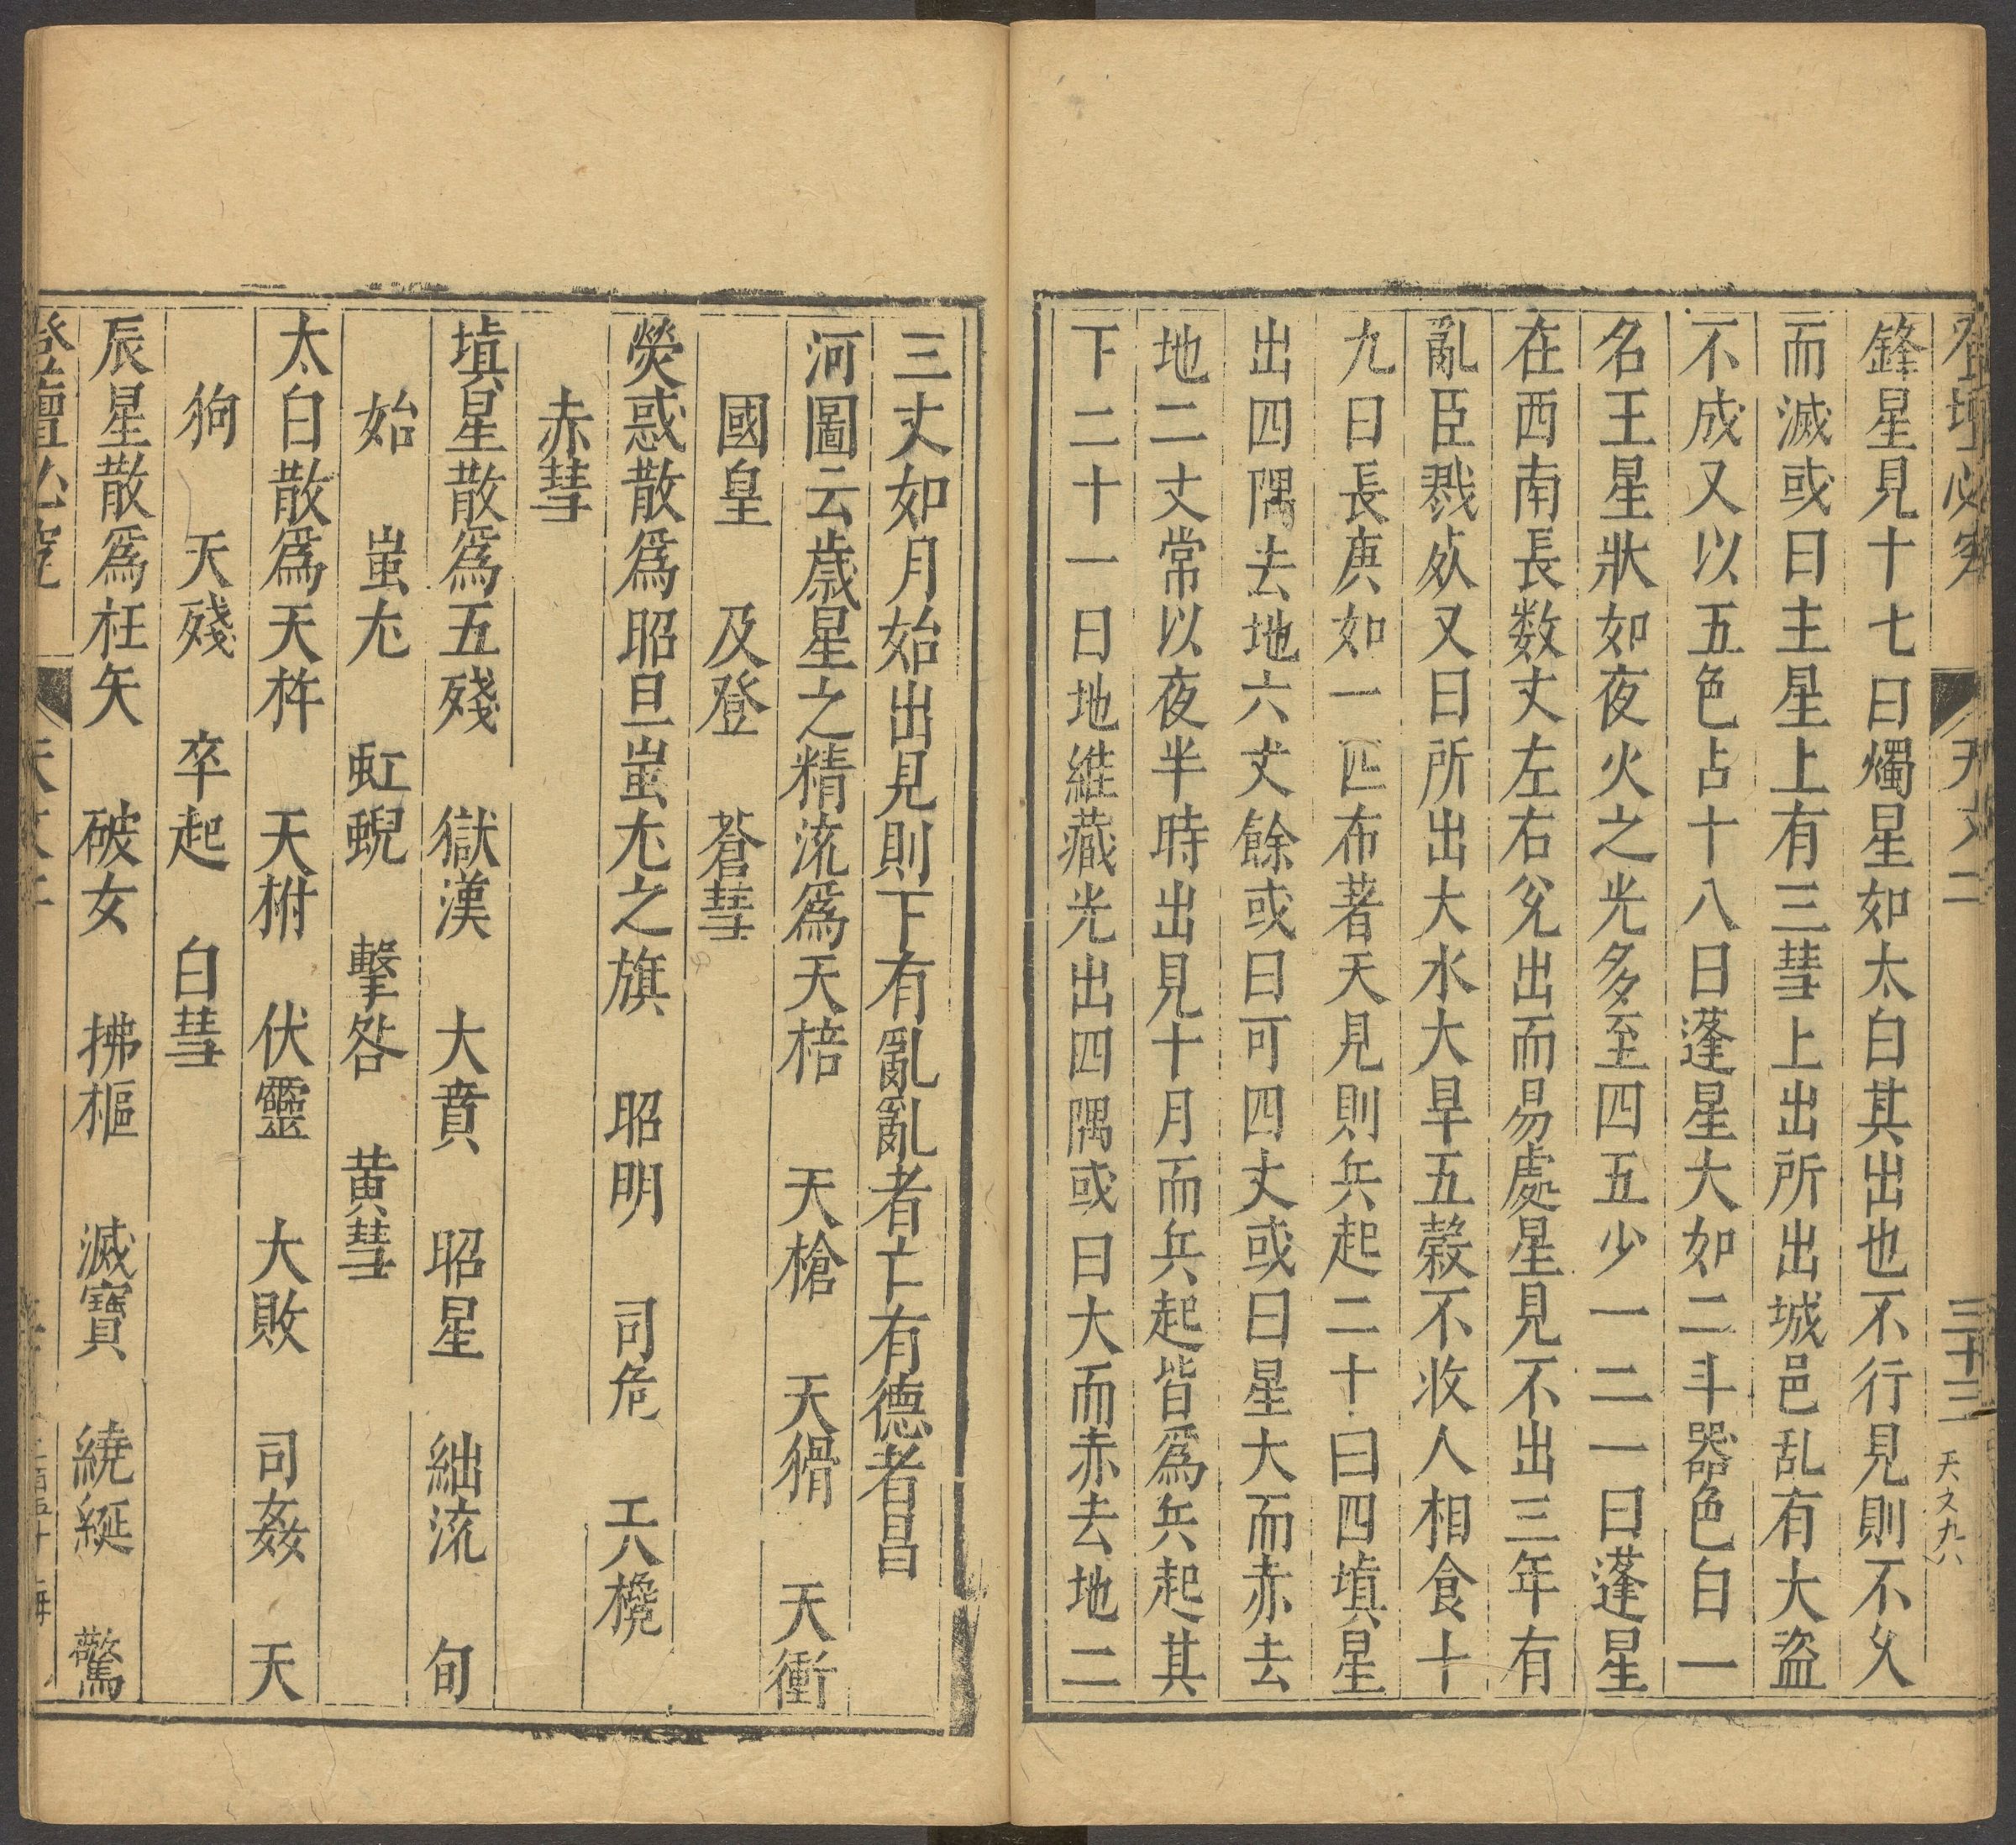 登壇必究 天文二 三十三 天之九八
鋒星見十七曰燭星如太白其出也不行見則不久
而滅或曰主星上有三彗上出所出城邑乱有大盜
不成又以五色占十八曰蓬星大如二斗器色白一
名王星狀如夜火之光多至四五少一二一曰蓬星
在西南長数丈左右兊出而易處星見不出三年有
亂臣戮死又曰所出大水大旱五穀不收人相食十
九曰長庚如一匹布著天見則兵起二十曰四填星
出四隅去地六丈餘或曰可四丈或曰星大而赤去
地二丈常以夜半時出見十月而兵起皆爲兵起其
下二十一曰地維藏光出四隅或曰大而赤去地二
三丈如月始出見則下有亂亂者亡有德者昌
河圖云歳星之精流爲天棓 天槍 天猾 天衝
國皇 及登 蒼彗
熒惑散爲昭旦蚩尤之旗 昭明 司危 天欃
赤彗
填星散爲五殘 獄漢 大賁 昭星 絀流 旬
始 蚩尤 虹蜺 擊咎 黄彗
太白散爲天杵 天柎 伏靈 大敗 司姦 天
狗 天殘 卒起 白彗
辰星散爲枉矢 破女 拂樞 滅寶 繞綖 驚
登壇必究 天文二